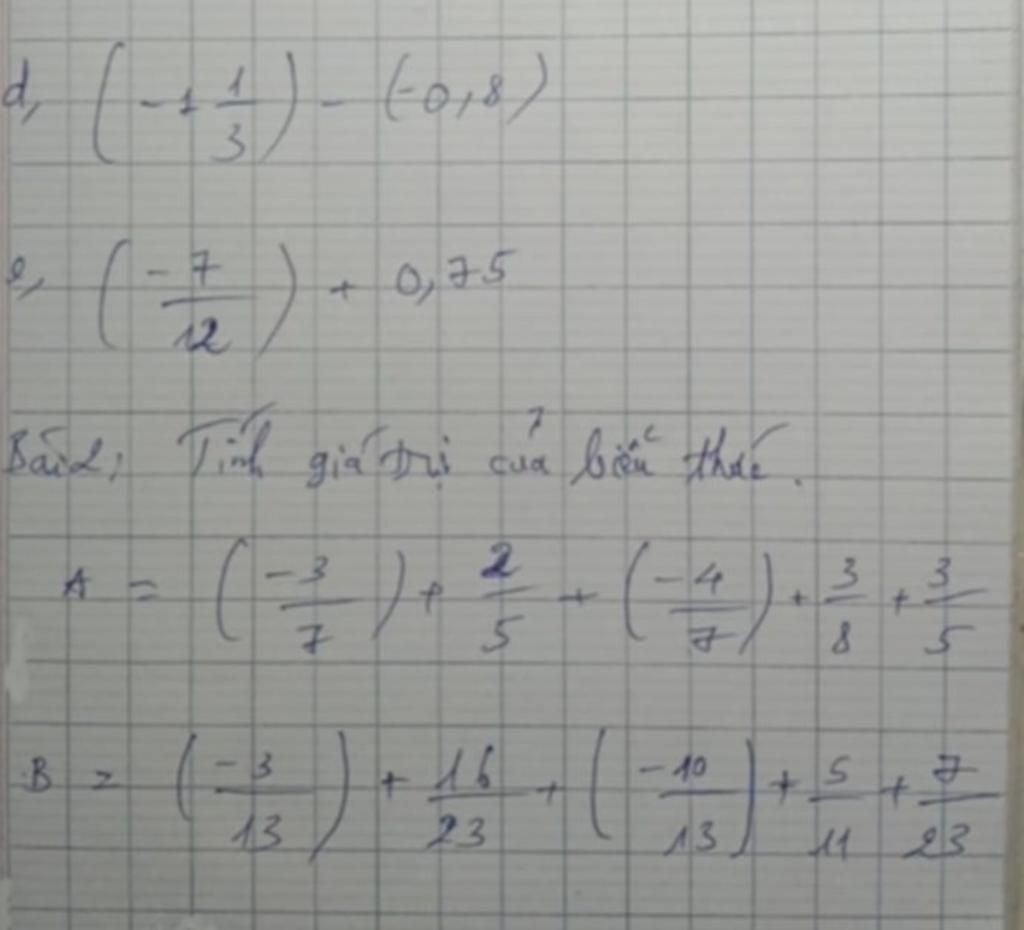 d, (-1 1/3) - (-0,8)
e, (-7/12) + 0,75
Bài 2: Tính giá trị của biểu thức.
A = (-3/7) + 2/5 + (-4/7) + 3/8 + 3/5
B = (-3/13) + 16/23 + (-10/13) + 5/11 + 7/23